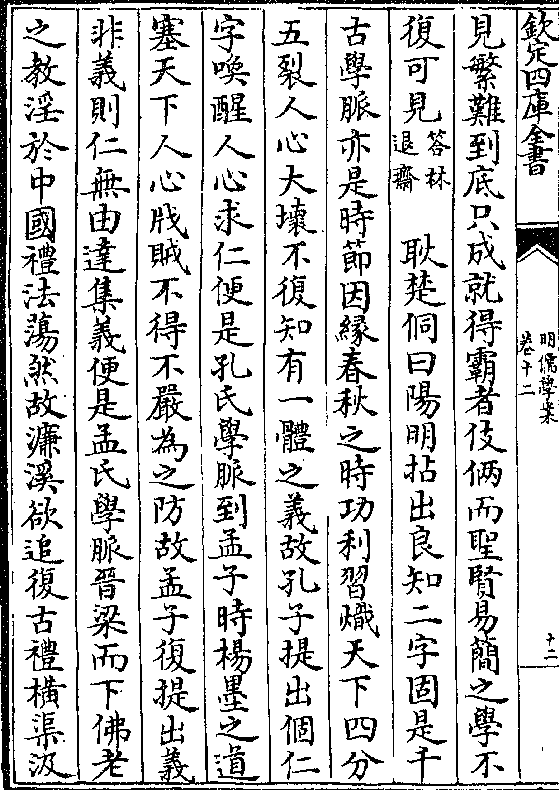 欽定四庫全書
明儒學案
卷十二
十二
見繁難到底只成就得霸者伎倆而聖賢易簡之學不
復可見答林退齋　耿楚侗曰陽明拈出良知二字固是千
古學脈亦是時節因緣春秋之時功利習熾天下四分
五裂人心大壞不復知有一體之義故孔子提出個仁
字喚醒人心求仁便是孔氏學脈到孟子時楊墨之道
塞天下人心戕賊不得不嚴為之防故孟子復提出義
非義則仁無由達集義便是孟氏學脈晉梁而下佛老
之教淫於中國禮法蕩然故濂溪欲追復古禮橫渠汲